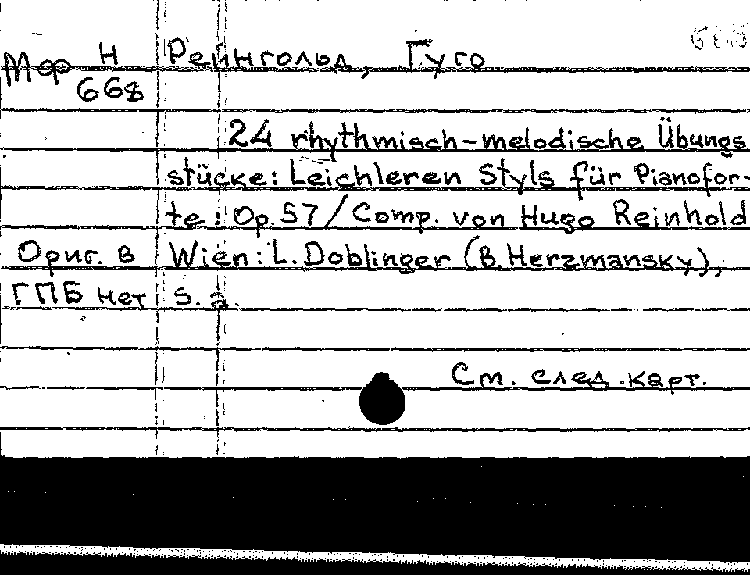 Мф Н 668 Рейнгольд, Гуго
24 rhythmisch-melodische Übungs
stücke: Leichleren Styls für Pianofor-
te: Op. 57 / Comp. von Hugo Reinhold
Ориг. в Wien: L. Doblinger (B. Herzmansky),
ГПБ нет s. a.
См. след. карт.